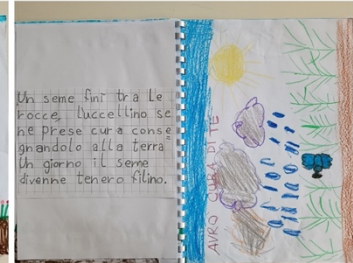 Un seme finì tra le
rocce, l'uccellino se
ne prese cura conse
gnandolo alla terra
Un giorno il seme
divenne tenero filino.
AVRO CURA DI TE